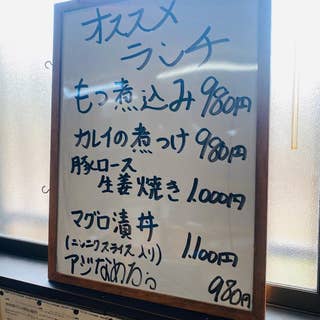 オススメ
ランチ
もつ煮込み 980円
カレイの煮つけ 980円
豚ロース
生姜焼き 1.000円
マグロ漬丼
(ニンニクスライス入り) 1.100円
アジなめろう
980円